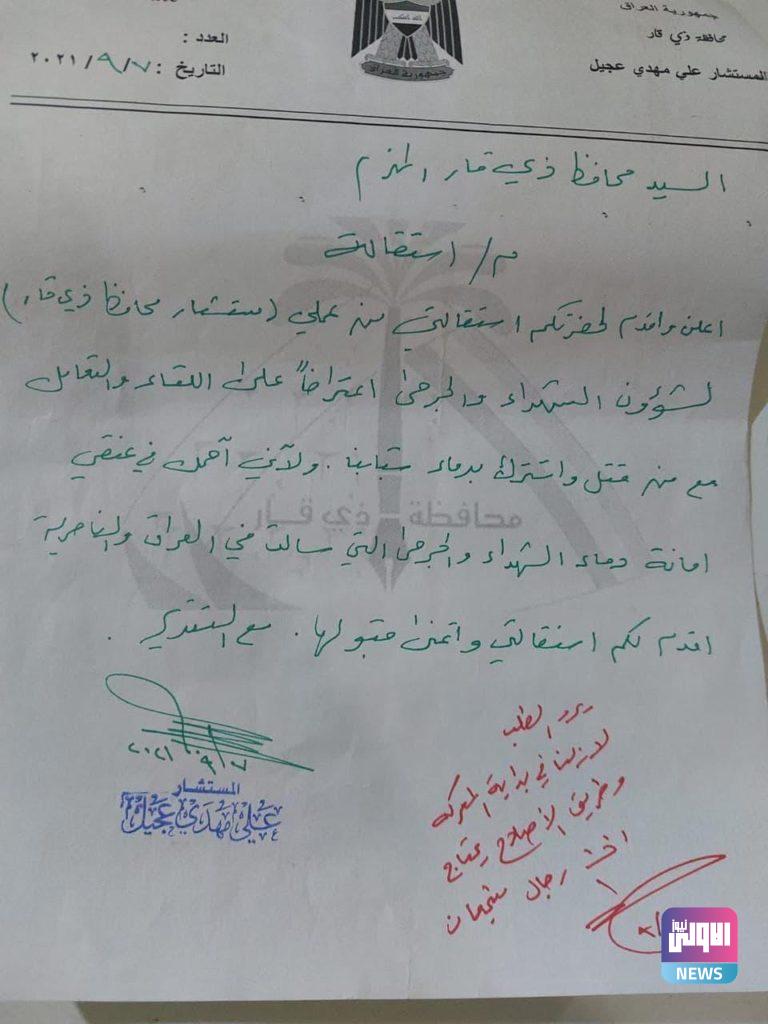 جمهورية العراق
محافظة ذي قار
المستشار علي مهدي عجيل
العدد :
التاريخ : ٢٠٢١/٩/٧
جمهورية العراق
السيد محافظ ذي قار المحترم
م/ استقالة
اعلن واقدم لحضرتكم استقالتي من عملي (مستشار محافظ ذي قار)
لشؤون الشهداء والجرحى اعتراضاً على اللقاء والتعامل
مع من قتل واشترك بدماء شبابنا . ولأنني أحمل في عنقي
امانة دماء الشهداء والجرحى التي سالت في العراق والناصرية
اقدم لكم استقالتي واتمنى قبولها . مع التقدير .
محافظة - ذي قار
٢٠٢١/٩/٧
المستشار
علي مهدي عجيل
يرد الطلب
لازلنا في بداية المعركة
وطريق الأصلاح يحتاج
رجال شجعان
الاولى نيوز
NEWS